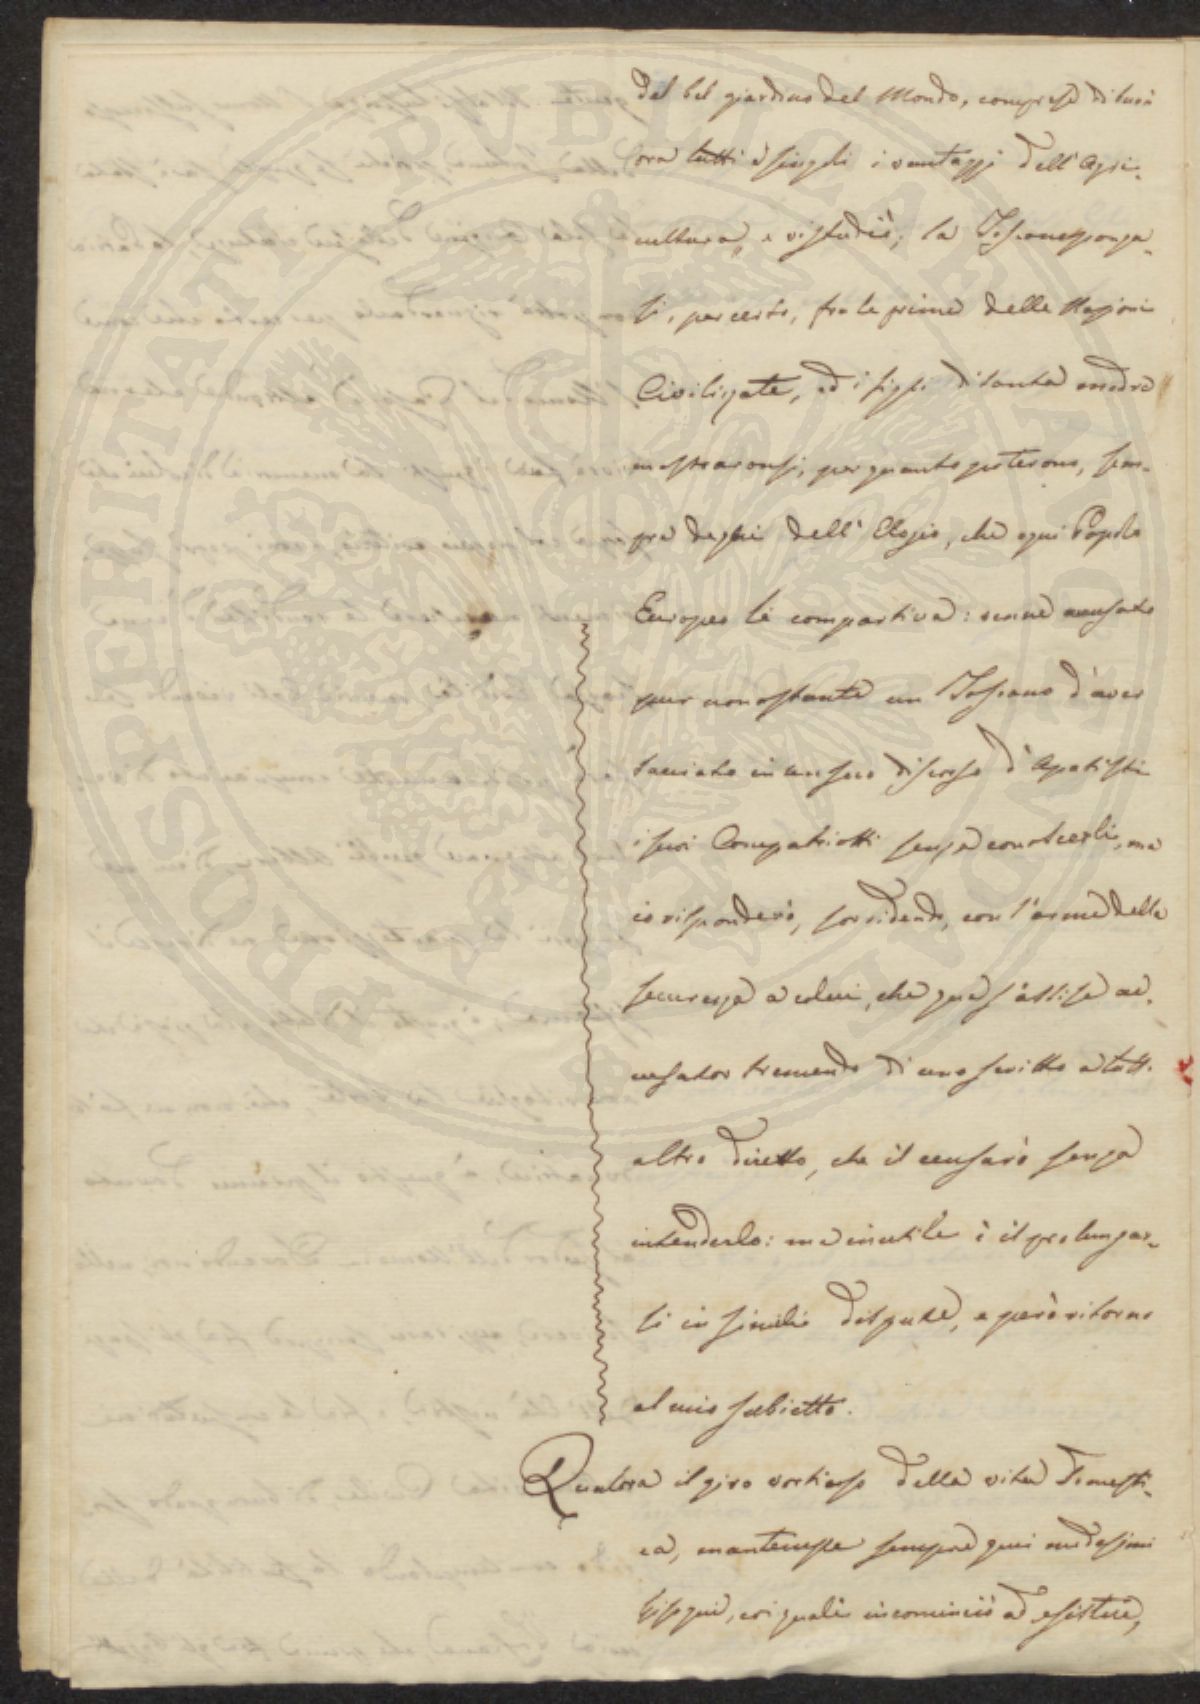 del bel giardino del Mondo, comprese di buon'
ora tutti e singoli i vantaggi dell'Agri-
cultura, e vi studiò; la Toscana
si, per certo, fra le prime delle Nazioni
Civilizate, ed i figli di tanta madre
mostraronsi, per quanto poterono, sem-
pre degni dell'Elogio, che ogni Popolo
Europeo le compartiva: venne accusato
pur nonostante un Toscano d'aver
tacciato in un suo discorso d'Apatisti
i suoi Compatriotti senza conoscerli, ma
io risponderò, sorridendo, con l'arme della
securezza a colui, che quà s'assise ac-
cusator tremendo di uno scritto a tutt'
altro diretto, che il censurò senza
intenderlo: ma inutile è il prolungar-
si in simili dispute, e però ritorno
al mio subietto.
Qualora il giro vorticoso della vita domesti-
ca, mantenesse sempre quei medesimi
bisogni, coi quali incominciò ad esistere,
PROSPERITATI PVBLICAE AVGENDAE